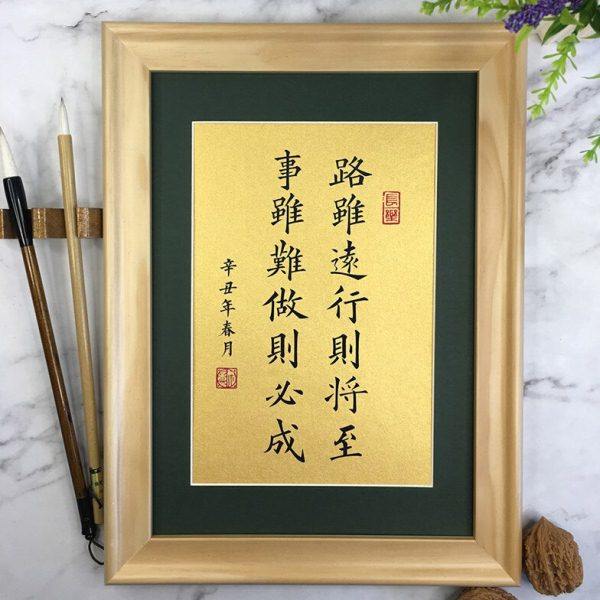 路雖遠行則将至
事雖難做則必成
辛丑年春月